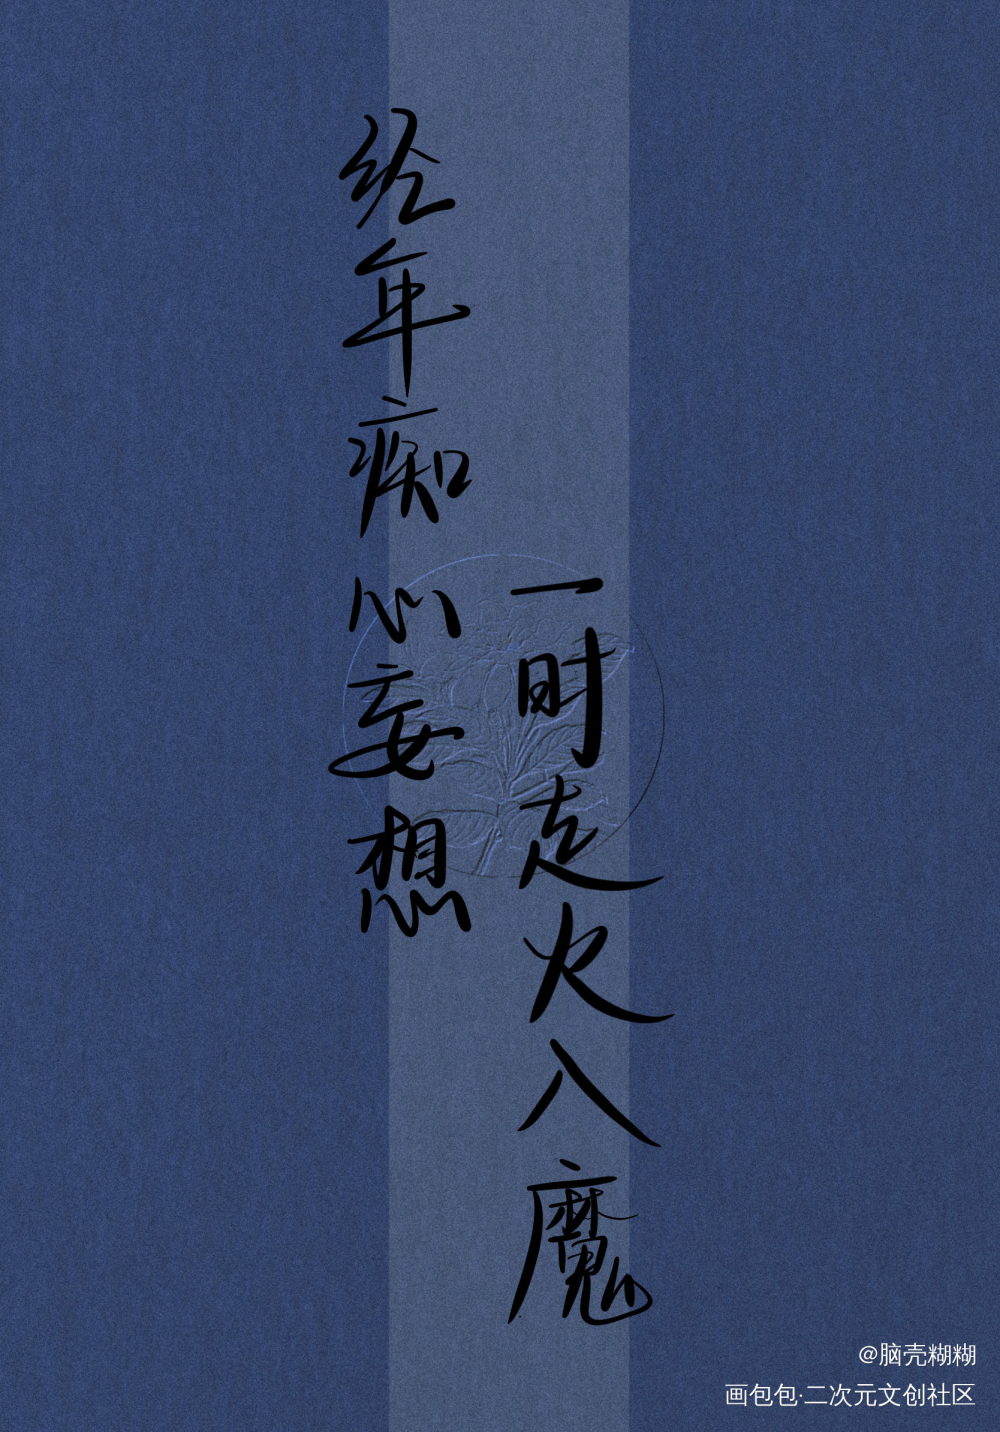 经年痴心妄想
一时走火入魔
@脑壳糊糊
画包包·二次元文创社区